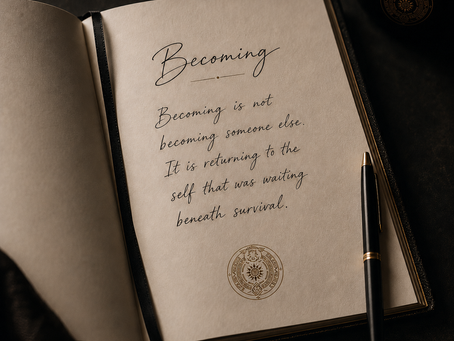 Becoming
Becoming is not
becoming someone else.
It is returning to the
self that was waiting
beneath survival.